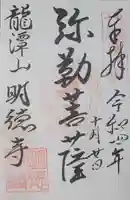 奉拝 令和四年
十月廿日
弥勒菩薩
龍潭山 明徳寺